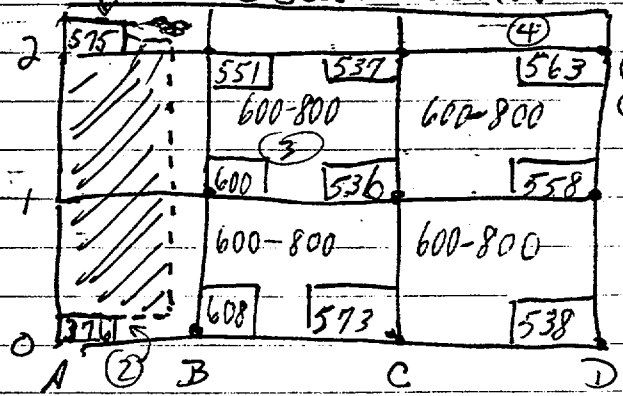 ④
2 575
551 537 563
600-800 600-800
③
1 600 536 558
600-800 600-800
376 608 573 538
0 ②
A B C D